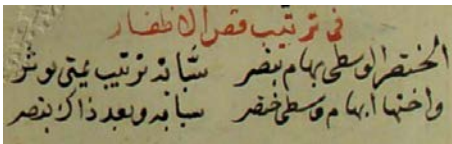 في ترتيب قص الاظفار
الخنصر الوسطى بهام بنصر سبابة ترتيب يمنى يوثر
واختها ابهام وسطى خنصر سبابه وبعد ذاك بنصر